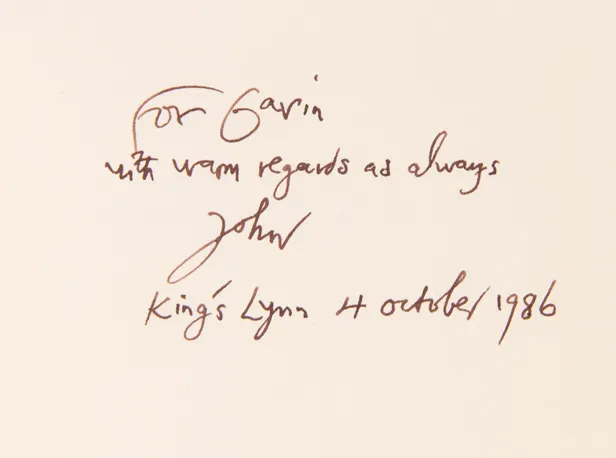 For Gavin
with warm regards as always
John
King's Lynn 4 october 1986